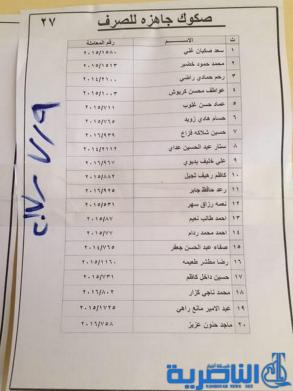 ٢٧
صكوك جاهزه للصرف
ت الاسم رقم المعاملة
١ سعد صكبان غني ٢٠١٥/١٥٨٠
٢ محمد حمود خضير ٢٠١٥/١
٣ رحم حمادي راضي ٢٠١٤/٢١٠٠
٤ عواطف محسن كريوش ٢٠١٥/١٠٠٣
٥ عماد حسن غثوب ٢٠١٥/٧١١
٦ حسام هادي زويد ٢٠١٥/٧٦٥
٧ حسين شلاكه فزاع ٢٠١٦/٩٣٩
٨ ستار عبد الحسين عداي ٢٠١٤/٢١١٢
٩ علي خليف بديوي ٢٠١٦/٩٦٧
١٠ كاظم رهيف ثجيل ٢٠١٥/٨٨٢
١١ رعد حافظ جابر ٢٠١٦/٩٢٥
١٢ نعمه رزاق سهر ٢٠١٥/٥٣١
١٣ احمد طالب نعيم ٢٠١٥/٨٧
١٤ احمد محمد ردام ٢٠١٥/٧٧
١٥ صفاء عبد الحسن جعفر ٢٠١٤/٧٦٥
١٦ رضا مطشر طعيمه ٢٠١٥/١١٦٠
١٧ حسين داخل كاظم ٢٠١٥/٧٣١
١٨ محمد ناجي كزار ٢٠١٦/٨٠٢
١٩ عبد الامير مانع راهي ٢٠١٥/١٧٢٥
٢٠ ماجد حنون عزيز ٢٠١٦/٧٥٨
شبكة أخبار
الناصرية